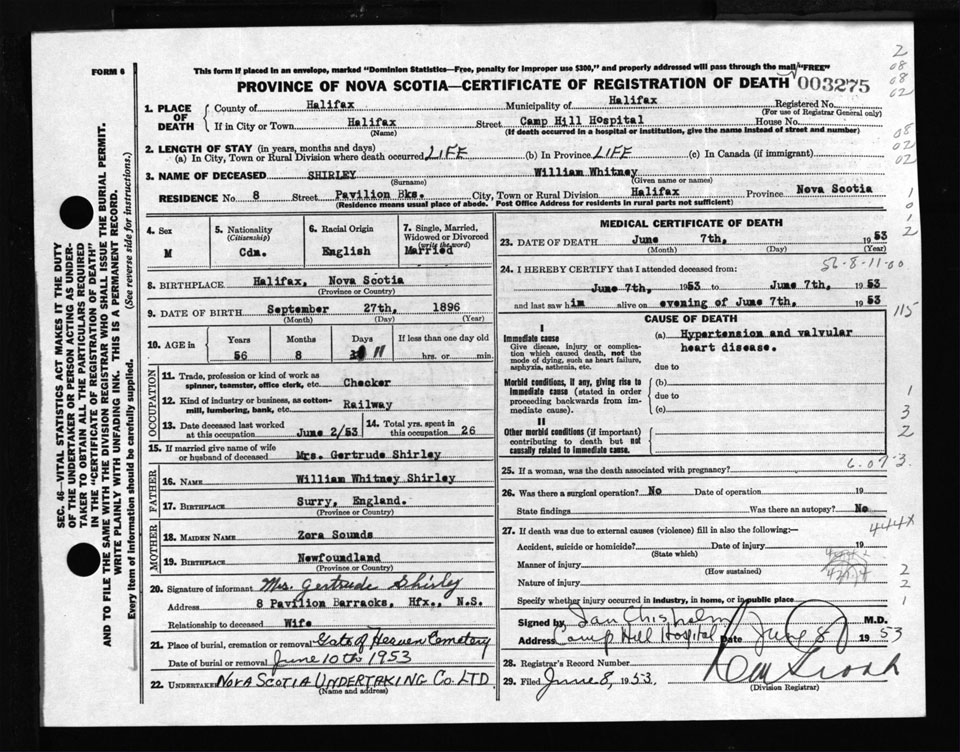 FORM 6
This form if placed in an envelope, marked "Dominion Statistics—Free, penalty for improper use $300," and properly addressed will pass through the mail "FREE"
PROVINCE OF NOVA SCOTIA—CERTIFICATE OF REGISTRATION OF DEATH 003275
2
08
08
02
08
02
02
1
0
1
2
SEC. 46—VITAL STATISTICS ACT MAKES IT THE DUTY
OF THE UNDERTAKER OR PERSON ACTING AS UNDER-
TAKER TO OBTAIN ALL THE PARTICULARS REQUIRED
IN THE "CERTIFICATE OF REGISTRATION OF DEATH"
AND TO FILE THE SAME WITH THE DIVISION REGISTRAR WHO SHALL ISSUE THE BURIAL PERMIT.
WRITE PLAINLY WITH UNFADING INK. THIS IS A PERMANENT RECORD.
Every item of information should be carefully supplied. (See reverse side for instructions.)
1. PLACE OF DEATH
County of Halifax Municipality of Halifax Registered No.
(For use of Registrar General only)
If in City or Town Halifax Street Camp Hill Hospital House No.
(Name) (If death occurred in a hospital or institution, give the name instead of street and number)
2. LENGTH OF STAY (in years, months and days)
(a) In City, Town or Rural Division where death occurred LIFE (b) In Province LIFE (c) In Canada (if immigrant)
3. NAME OF DECEASED SHIRLEY William Whitney
(Surname) (Given name or names)
RESIDENCE No 8 Street Pavilion Bks. City, Town or Rural Division Halifax Province Nova Scotia
(Residence means usual place of abode. Post Office Address for residents in rural parts not sufficient)
4. Sex
M
5. Nationality
(Citizenship)
Cdn.
6. Racial Origin
English
7. Single, Married,
Widowed or Divorced
(write the word)
Married
8. BIRTHPLACE Halifax, Nova Scotia
(Province or Country)
9. DATE OF BIRTH September 27th, 1896
(Month) (Day) (Year)
10. AGE in
Years Months Days If less than one day old
56 8 11 hrs. or min.
OCCUPATION
11. Trade, profession or kind of work as
spinner, teamster, office clerk, etc. Checker
12. Kind of industry or business, as cotton-
mill, lumbering, bank, etc. Railway
13. Date deceased last worked
at this occupation June 2/53
14. Total yrs. spent in
this occupation 26
15. If married give name of wife
or husband of deceased Mrs. Gertrude Shirley
FATHER
16. NAME William Whitney Shirley
17. BIRTHPLACE Surry, England.
(Province or Country)
MOTHER
18. MAIDEN NAME Zora Sounds
19. BIRTHPLACE Newfoundland
(Province or Country)
20. Signature of informant Mrs. Gertrude Shirley
Address 8 Pavilion Barracks, Hfx., N.S.
Relationship to deceased Wife
21. Place of burial, cremation or removal Gate of Heaven Cemetery
Date of burial or removal June 10th 1953
22. UNDERTAKER NOVA SCOTIA UNDERTAKING CO. LTD
(Name and address)
MEDICAL CERTIFICATE OF DEATH
23. DATE OF DEATH June 7th, 1953
(Month) (Day) (Year)
56-8-11-00
24. I HEREBY CERTIFY that I attended deceased from:
June 7th, 1953 to June 7th, 1953
and last saw him alive on evening of June 7th, 1953
115
CAUSE OF DEATH
I
Immediate cause
Give disease, injury or complica-
tion which caused death, not the
mode of dying, such as heart failure,
asphyxia, asthenia, etc.
(a) Hypertension and valvular
heart disease.
due to
Morbid conditions, if any, giving rise to
immediate cause (stated in order
proceeding backwards from im-
mediate cause).
(b)
due to
(c)
1
3
2
II
Other morbid conditions (if important)
contributing to death but not
causally related to immediate cause.
25. If a woman, was the death associated with pregnancy?
6.07.3.
26. Was there a surgical operation? No Date of operation 19
State findings Was there an autopsy? No
27. If death was due to external causes (violence) fill in also the following:—
444X
Accident, suicide or homicide? Date of injury 19
(State which)
Manner of injury
(How sustained)
2
Nature of injury
2
Specify whether injury occurred in industry, in home, or in public place
1
Signed by Ian Chisholm M.D.
Address Camp Hill Hospital Date June 8 1953
28. Registrar's Record Number
29. Filed June 8, 1953.
(Division Registrar)